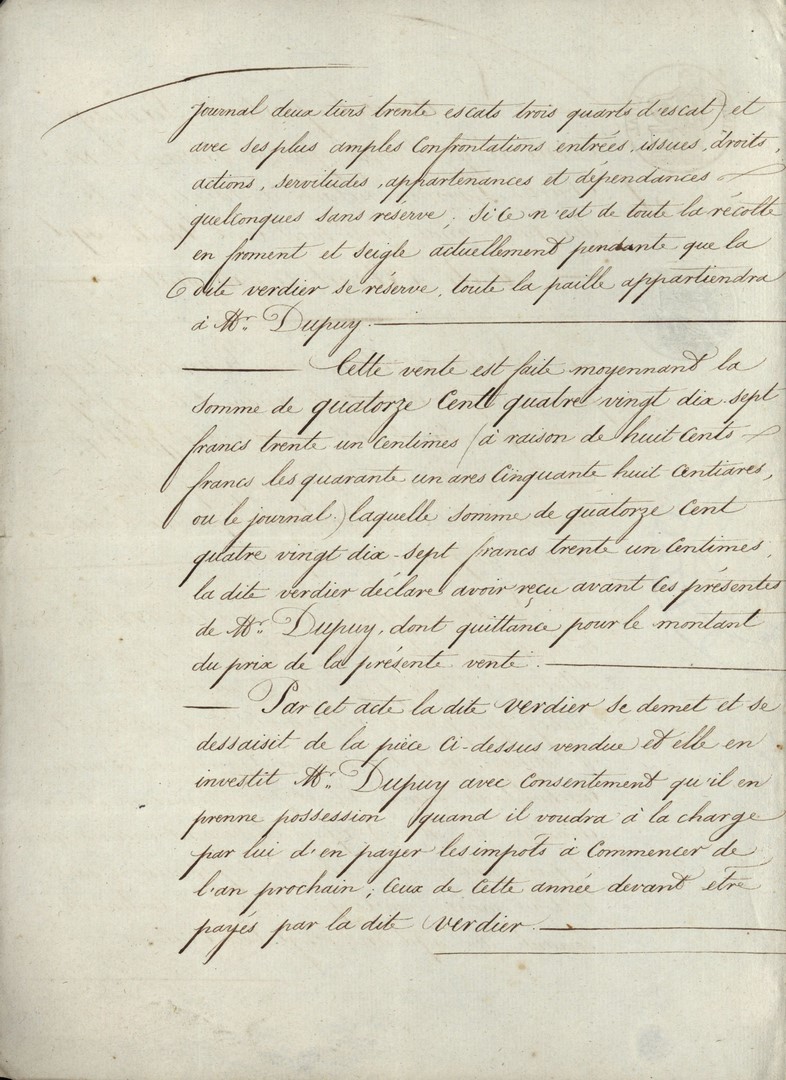 journal deux tiers trente escats trois quarts d'escat) et
avec ses plus amples Confrontations entrées, issues, droits,
actions, servitudes, appartenances et dépendances
quelconques sans réserve, si ce n'est de toute la récolte
en froment et seigle actuellement pendante que la
dite verdier se réserve, toute la paille appartiendra
à Mr. Dupuy.
Cette vente est faite moyennant la
somme de quatorze Cent quatre vingt dix-sept
francs trente un Centimes (à raison de huit Cents
francs les quarante un ares Cinquante huit Centiares,
ou le journal) laquelle somme de quatorze Cent
quatre vingt dix-sept francs trente un Centimes,
la dite verdier déclare avoir reçu avant Ces présentes
de Mr. Dupuy, dont quittance pour le montant
du prix de la présente vente.
Par cet acte la dite verdier se demet et se
dessaisit de la pièce Ci-dessus vendue et elle en
investit Mr. Dupuy avec Consentement qu'il en
prenne possession quand il voudra à la charge
par lui d'en payer les impots à Commencer de
l'an prochain; Ceux de Cette année devant etre
payés par la dite verdier.